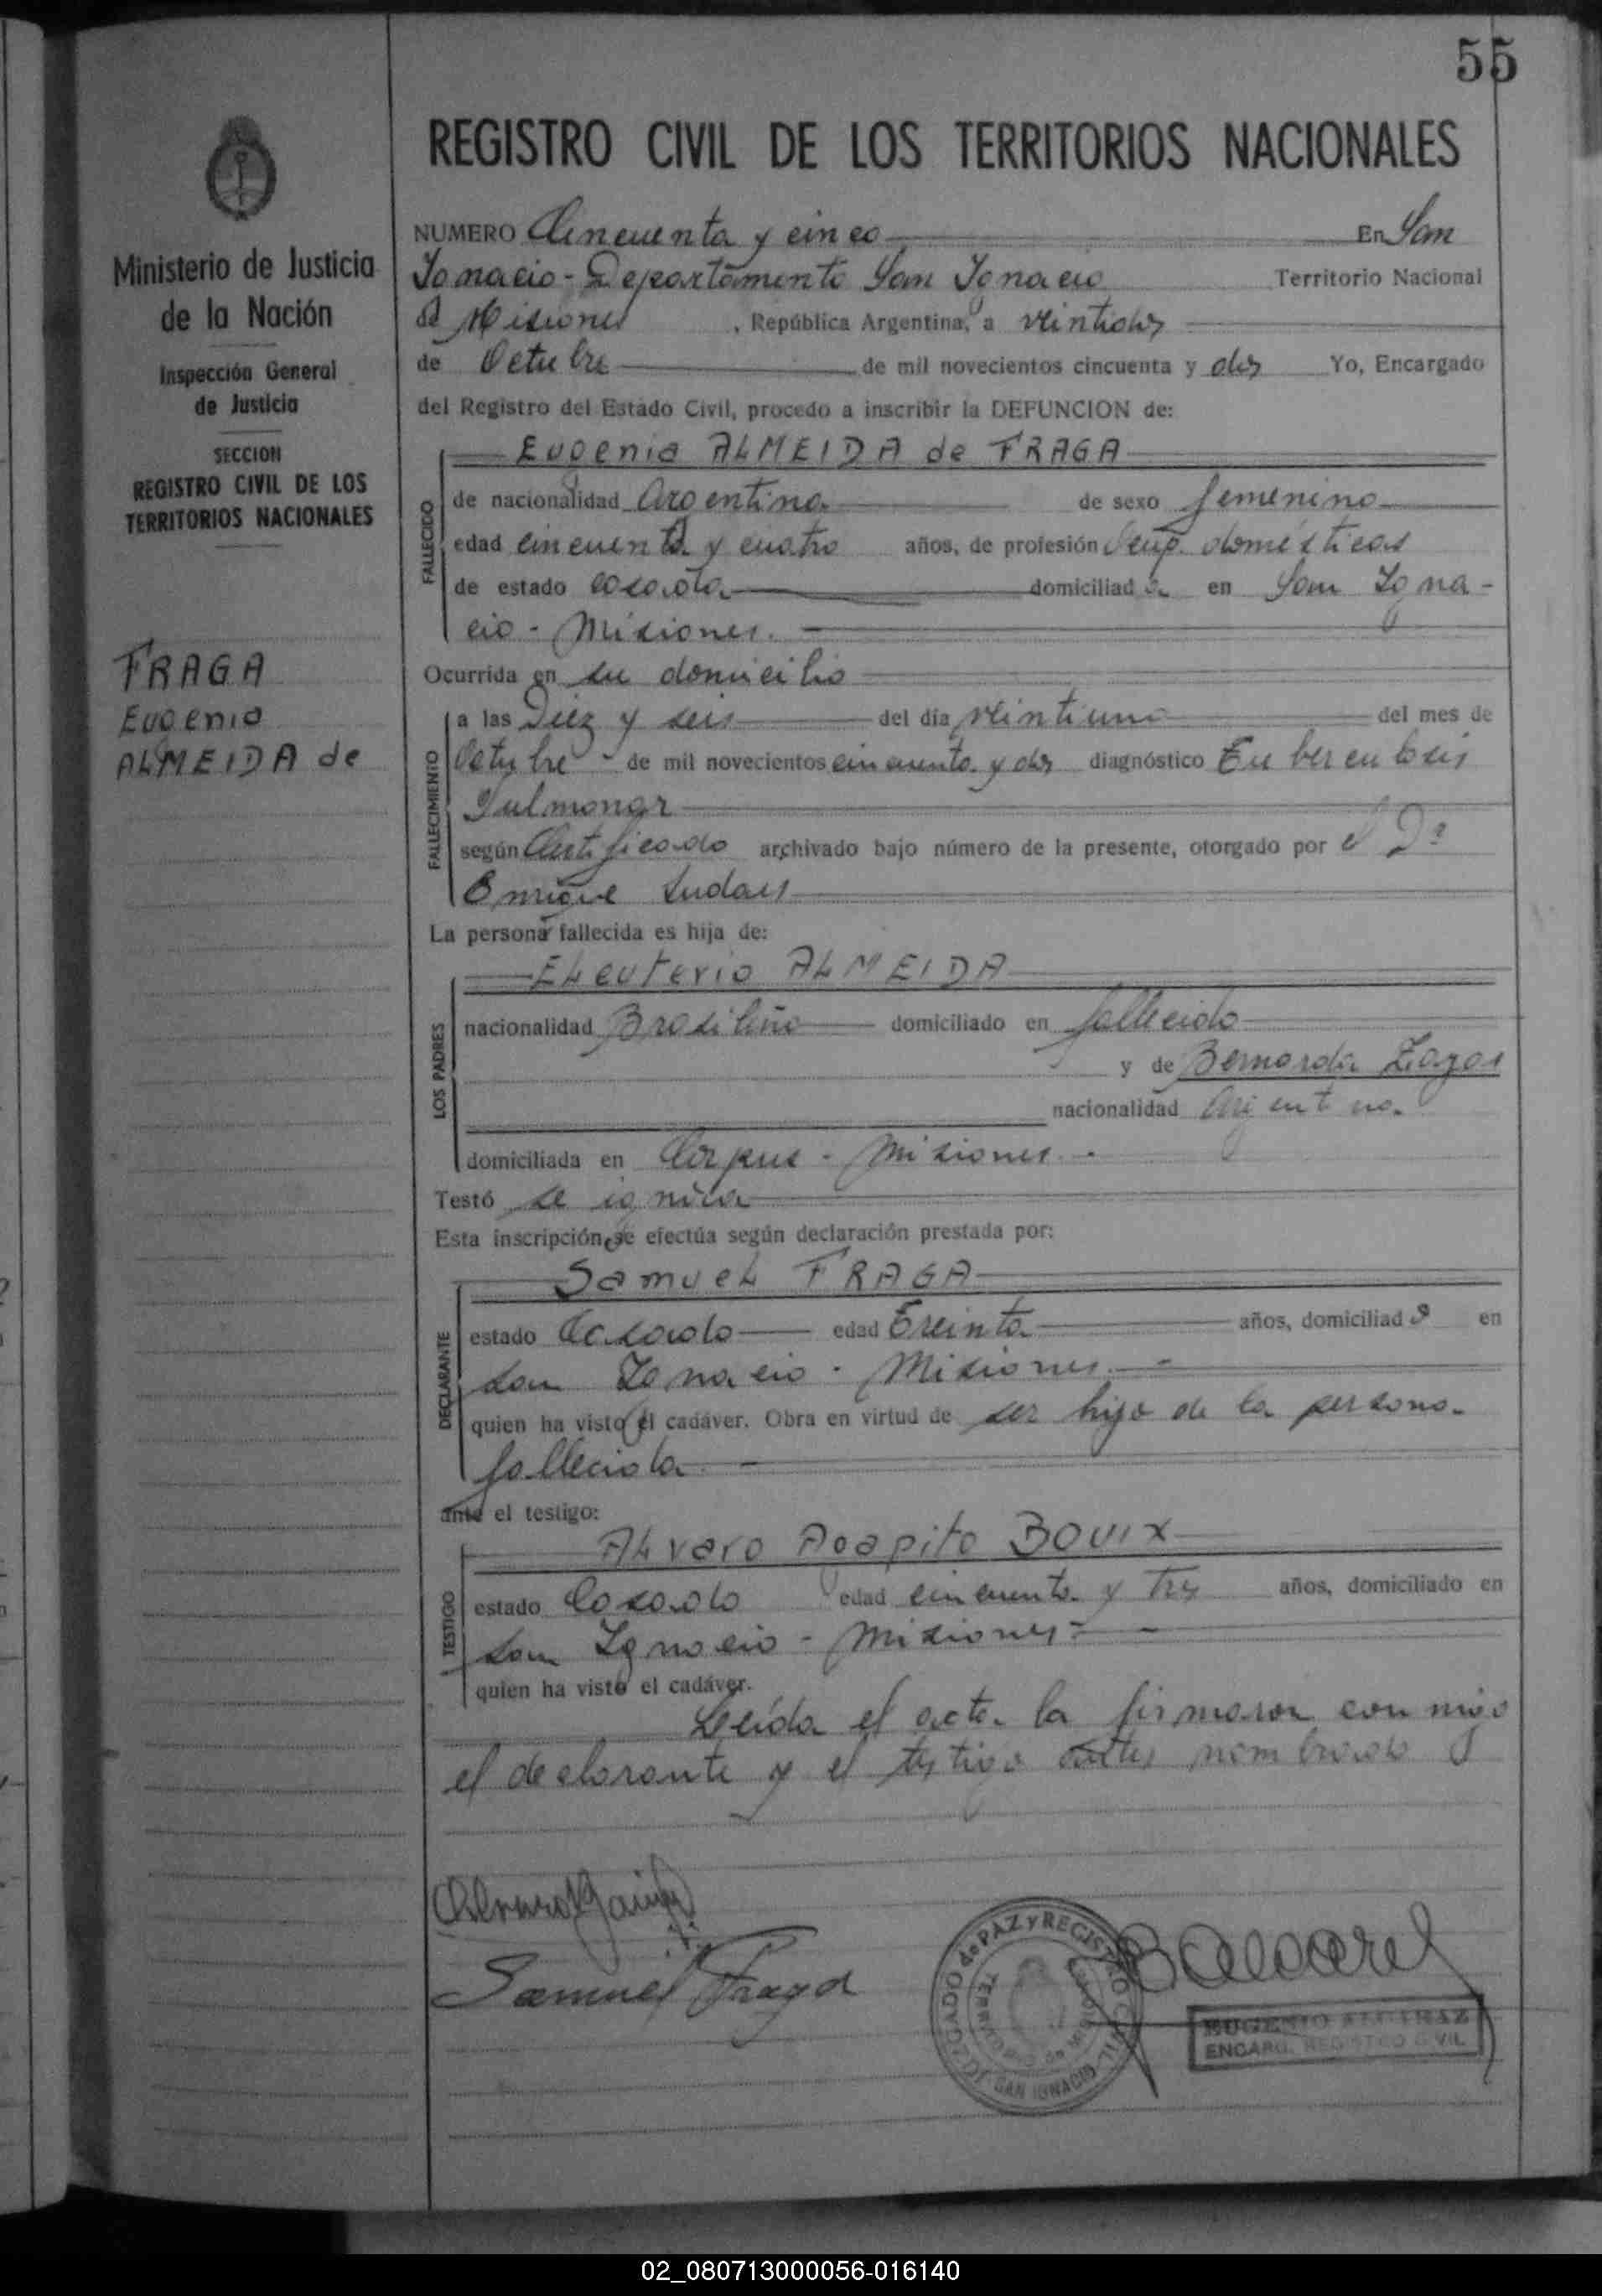 55
REGISTRO CIVIL DE LOS TERRITORIOS NACIONALES
Ministerio de Justicia
de la Nación
Inspección General
de Justicia
SECCION
REGISTRO CIVIL DE LOS
TERRITORIOS NACIONALES
FRAGA
Eugenia
ALMEIDA de
NUMERO Cincuenta y cinco En San
Ignacio - Departamento San Ignacio Territorio Nacional
de Misiones , República Argentina, a veintidos
de Octubre de mil novecientos cincuenta y dos Yo, Encargado
del Registro del Estado Civil, procedo a inscribir la DEFUNCION de:
Eugenia ALMEIDA de FRAGA
FALLECIDO
de nacionalidad Argentina de sexo femenino
edad cincuenta y cuatro años, de profesión Ocup. domésticas
de estado casada domiciliad a en San Igna-
cio - Misiones.
Ocurrida en su domicilio
FALLECIMIENTO
a las Diez y seis del día veintiuno del mes de
Octubre - de mil novecientos cincuenta y dos diagnóstico Tuberculosis
Pulmonar
según Certificado archivado bajo número de la presente, otorgado por el Dr
Enrique
La persona fallecida es hija de:
ELeuterio ALMEIDA
LOS PADRES
nacionalidad Brasileño domiciliado en fallecido
y de Bernarda
nacionalidad Argentina
domiciliada en Corpus - Misiones. -
Testó se ignora
Esta inscripción se efectúa según declaración prestada por:
SamueL FRAGA
DECLARANTE
estado Casado edad Treinta años, domiciliad o en
San Ignacio - Misiones. -
quien ha visto el cadáver. Obra en virtud de ser hijo de la persona
fallecida. -
ante el testigo:
ALvaro Agapito BOUIX
TESTIGO
estado Casado edad cincuenta y tres años, domiciliado en
San Ignacio - Misiones - -
quien ha visto el cadáver.
Leída el acta la firmaron conmigo
el declarante y el testigo antes nombrado
Samuel Fraga
JUZGADO de PAZ y REGISTRO CIVIL
DE SAN IGNACIO
EUGENIO ALCARAZ
ENCARG. REGISTRO CIVIL
02_080713000056-016140